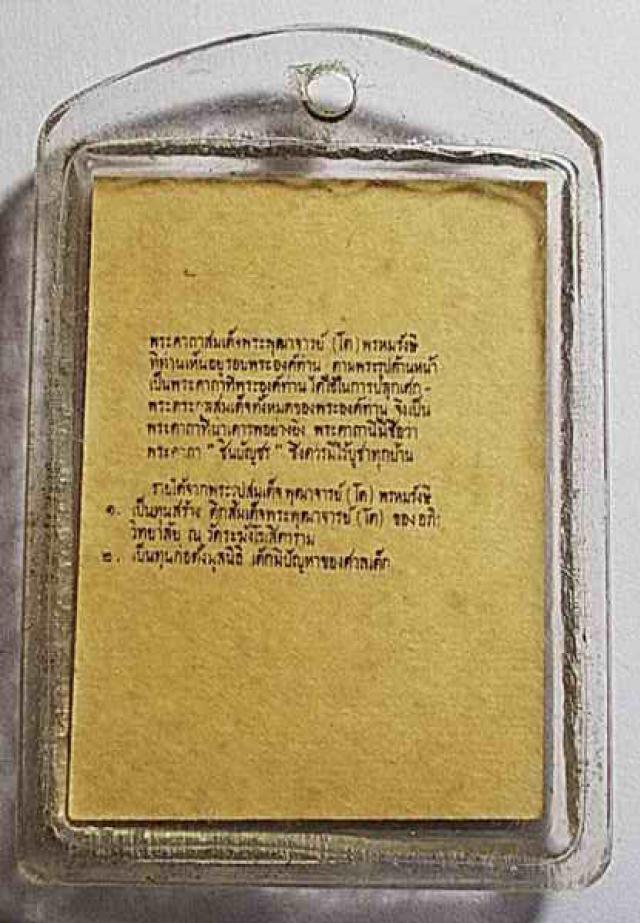 พระคาถาสมเด็จพระพุฒาจารย์ (โต) พรหมรังษี
ที่ท่านเห็นอยู่รอบพระองค์ท่าน ตามพระรูปด้านหน้า
เป็นพระคาถาที่พระองค์ท่าน ได้ใช้ในการปลุกเศก -
พระตระกูลสมเด็จทั้งหมดของพระองค์ท่าน จึงเป็น
พระคาถาที่น่าเคารพอย่างยิ่ง พระคาถานี้มีชื่อว่า
พระคาถา " ชินบัญชร " ซึ่งควรมีไว้บูชาทุกบ้าน
รายได้จากพระรูปสมเด็จพุฒาจารย์ (โต) พรหมรังษี
๑. เป็นทุนสร้าง ตึกสมเด็จพระพุฒาจารย์ (โต) ของ
วิทยาลัย ณ วัดระฆังโฆสิตาราม
๒. เป็นทุนก่อตั้งมูลนิธิ เด็กมีปัญหาของศาลเด็ก